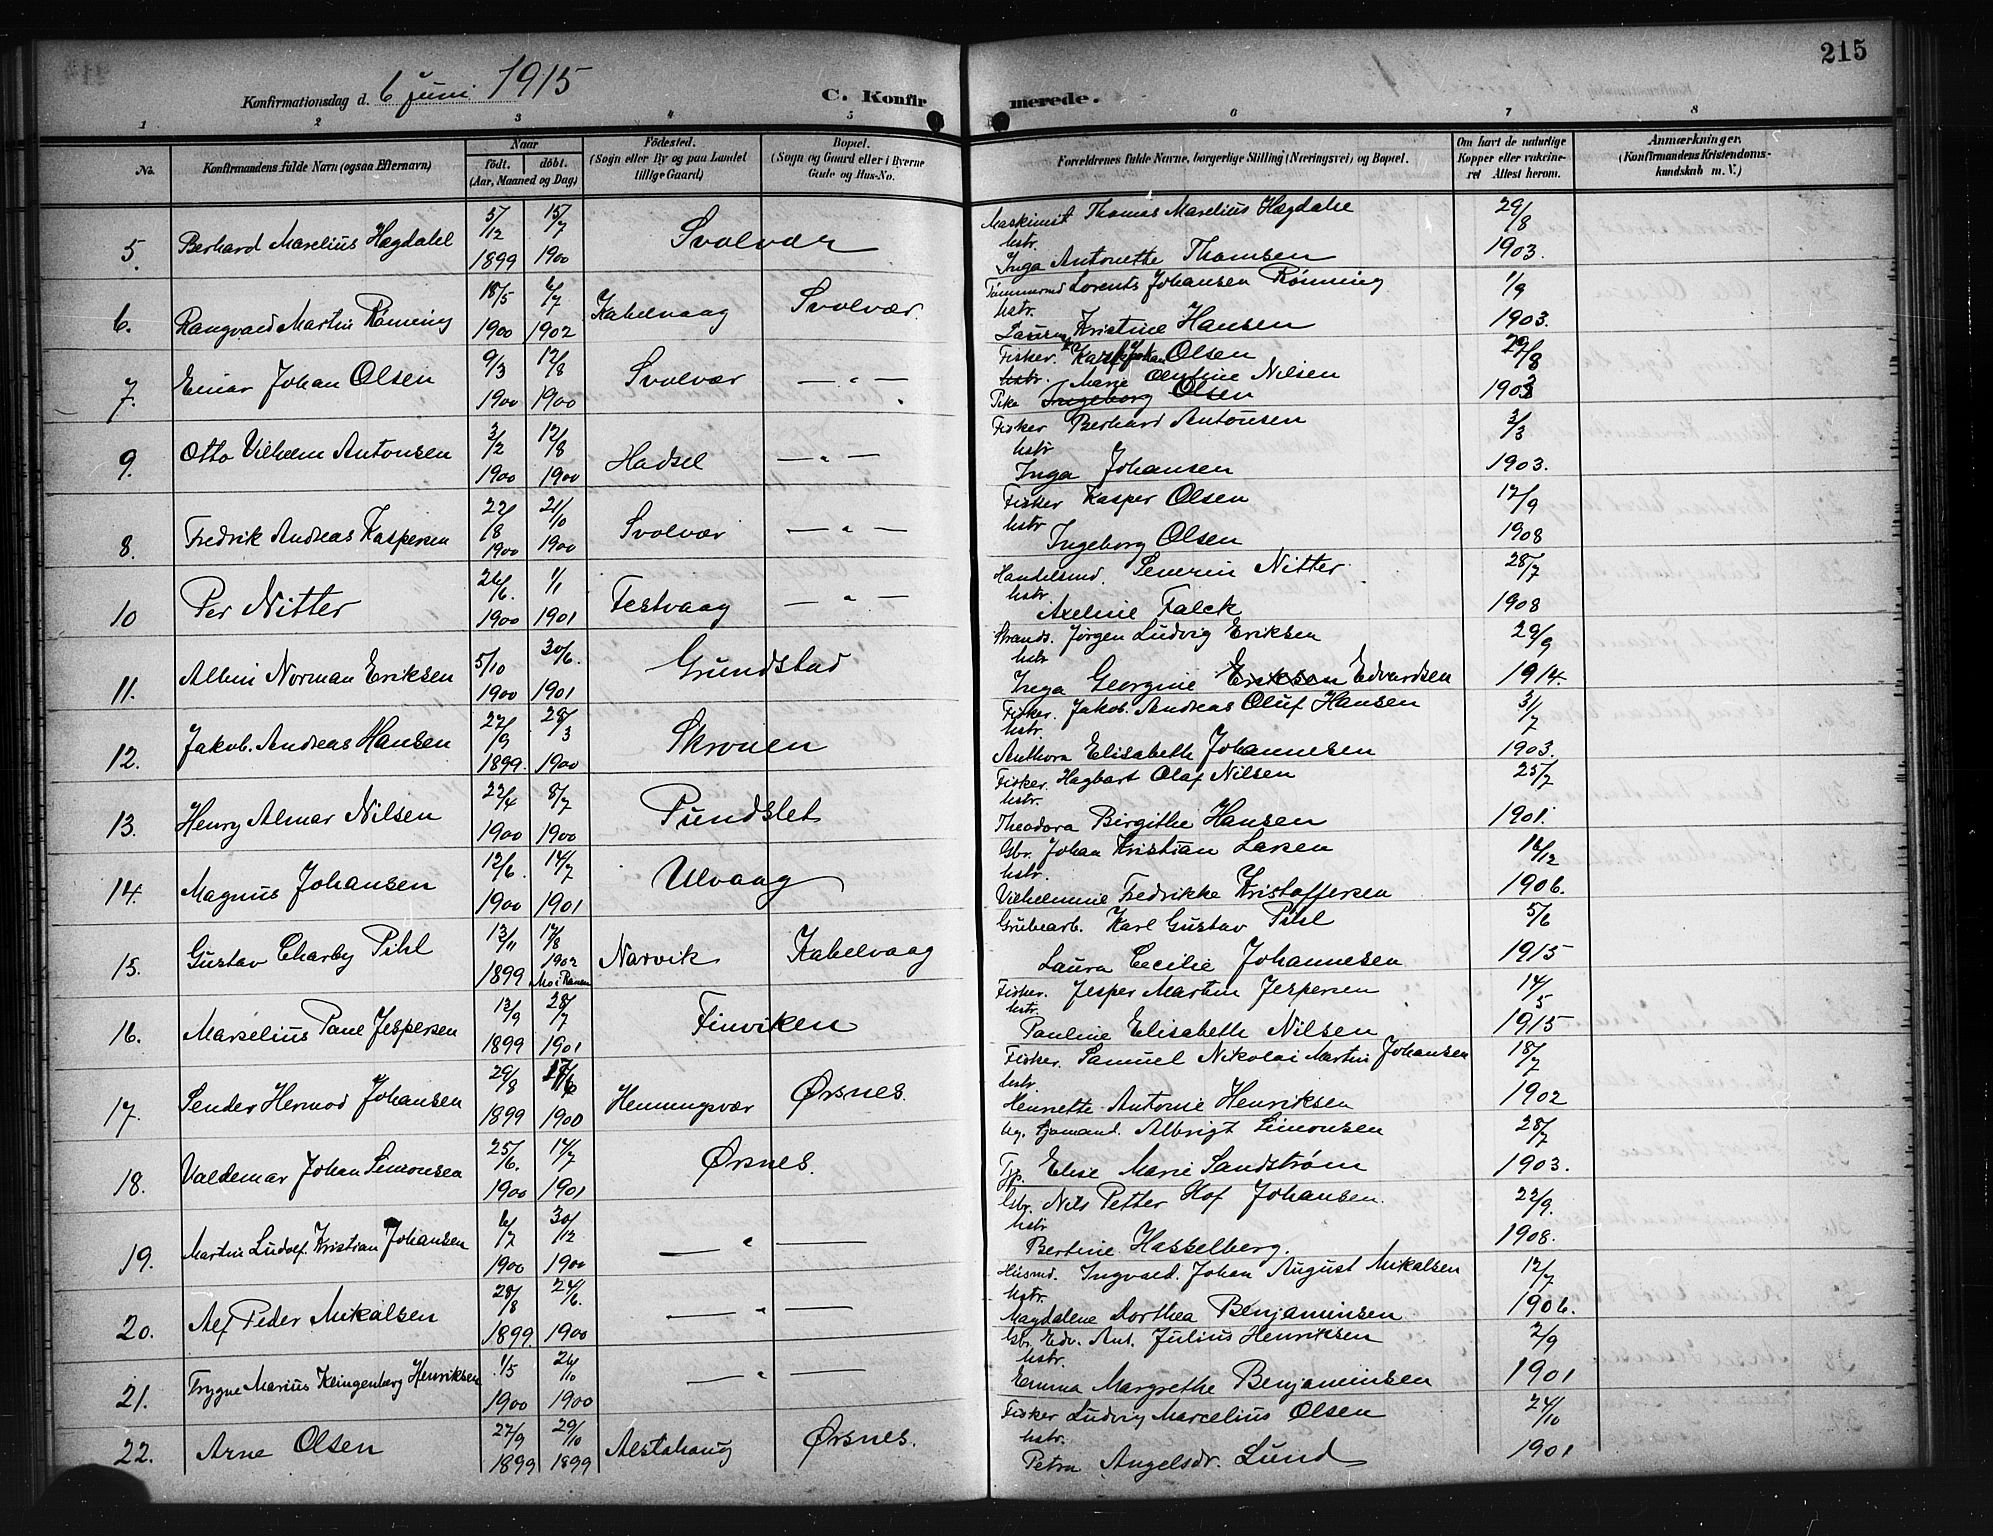 215
Konfirmationsdag d. 6 juni 1915
C. Konfirmerede.
1 2 3 4 5 6 7 8
No.
Konfirmandens fulde Navn (ogsaa Efternavn)
Naar
födt. döbt.
(Aar, Maaned og Dag)
Födested.
(Sogn eller By og paa Landet
tillige Gaard)
Bopæl.
(Sogn og Gaard eller i Byerne
Gade og Hus-No.
Forældrenes fulde Navne, borgerlige Stilling (Næringsvei) og Bopæl.
Om havt de naturlige
Kopper eller vakcine-
ret Attest herom.
Anmærkninger.
(Konfirmandens Kristendoms-
kundskab m. V.)
5. Berhard Marelius Hægdahl 5/12 1899 15/7 1900 Svolvær
Maskinist Thomas Marelius Hægdahl
hstr. Inga Antonette Thomsen 29/8 1903.
6. Rangvald Martin Rönning 18/5 1900 6/7 1902 Kabelvaag Svolvær
Tømmermd Lorents Johansen Rønning
hstr. Kristine Hansen 1/9 1903.
7. Einar Johan Olsen 9/3 1900 12/8 1900 Svolvær — " —
Fisker. Karl Johan Olsen
hstr. Marie Olufine Nilsen
Pike Ingeborg Olsen 29/8 1903
9. Otto Vilhelm Antonsen 3/2 1900 12/8 1900 Hadsel — " —
Fisker Berhard Antonsen
hstr Inga Johansen 3/3 1903.
8. Fredrik Andreas Kaspersen 22/8 1900 21/10 1900 Svolvær — " —
Fisker Kasper Olsen
hstr Ingeborg Olsen 17/9 1908
10 Per Nitter 26/6. 1900 1/1 1901 Festvaag — " —
Handelsmd. Severin Nitter
hstr. Axeline Falck 28/7 1908
11. Albin Norman Eriksen 5/10 1900 30/6. 1901 Grundstad
Strands. Jørgen Ludvig Eriksen
hstr Inga Georgine Eriksen Edvardsen 29/9 1914.
12. Jakob. Andreas Hansen 22/9 1899. 28/3 1900 Skroven
Fisker. Jakob. Andreas Oluf Hansen
hstr. Anthora Elisabeth Johannesen 31/7 1903.
13. Henry Almar Nilsen 22/4 1900 8/7 1900 Pundslet
Fisker. Hagbart Olaf Nilsen
hstr. Theodora Birgithe Hansen 25/7 1901.
14. Magnus Johansen 12/6. 1900 14/7 1901 Ulvaag
Gbr. Johan Kristian Larsen
hstr. Vilhelmine Fredrikke Kristoffersen 16/12 1906.
15. Gustav Charly Pihl 13/11 1899 17/8 1902 Mo i Ranen Narvik Kabelvaag
Grubearb. Karl Gustav Pihl
Laura Cecilie Johannesen 5/6 1915
16. Marselius Paul Jespersen 12/9 1899 28/7 1901 Finviken
Fisker. Jesper Martin Jespersen
hstr. Pauline Elisabeth Nilsen 14/5 1915
17. Sender Hermod Johansen 29/8 1899 1900 Henningsvær Ørsnes.
Fisker. Samuel Nikolai Martin Johansen
hstr. Henriette Antonie Henriksen 18/7 1902
18. Valdemar Johan Simonsen 25/6. 1900 14/7 1901 Ørsnes.
Albrigt Simonsen
Elise Marie Sandstrøm 28/7 1903.
19. Martin Ludolf Kristian Johansen 6/7 1900 30/12 1900 — " —
Gbr. Nils Petter Hof Johansen.
hstr Bertine Hasselberg. 22/9. 1908.
20. Alf Peder Mikalsen 28/8 1899. 24/6. 1900 — " —
Husmd. Ingvald. Johan August Mikalsen
hstr. Magdalene Dorthea Benjaminsen 12/7 1906.
21. Trygve Marius Klingenberg Henriksen 1/5 1900 26/10 1900 — " —
Gbr. Edv. Ant. Julius Henriksen
hstr. Emma Margrethe Benjaminsen 2/9 1901
22. Arne Olsen 27/9 1899 29/10 1899 Alstahaug Ørsnes.
Fisker Ludvig Marcelius Olsen
hstr. Petra Angelsdr. Lund 24/10 1901